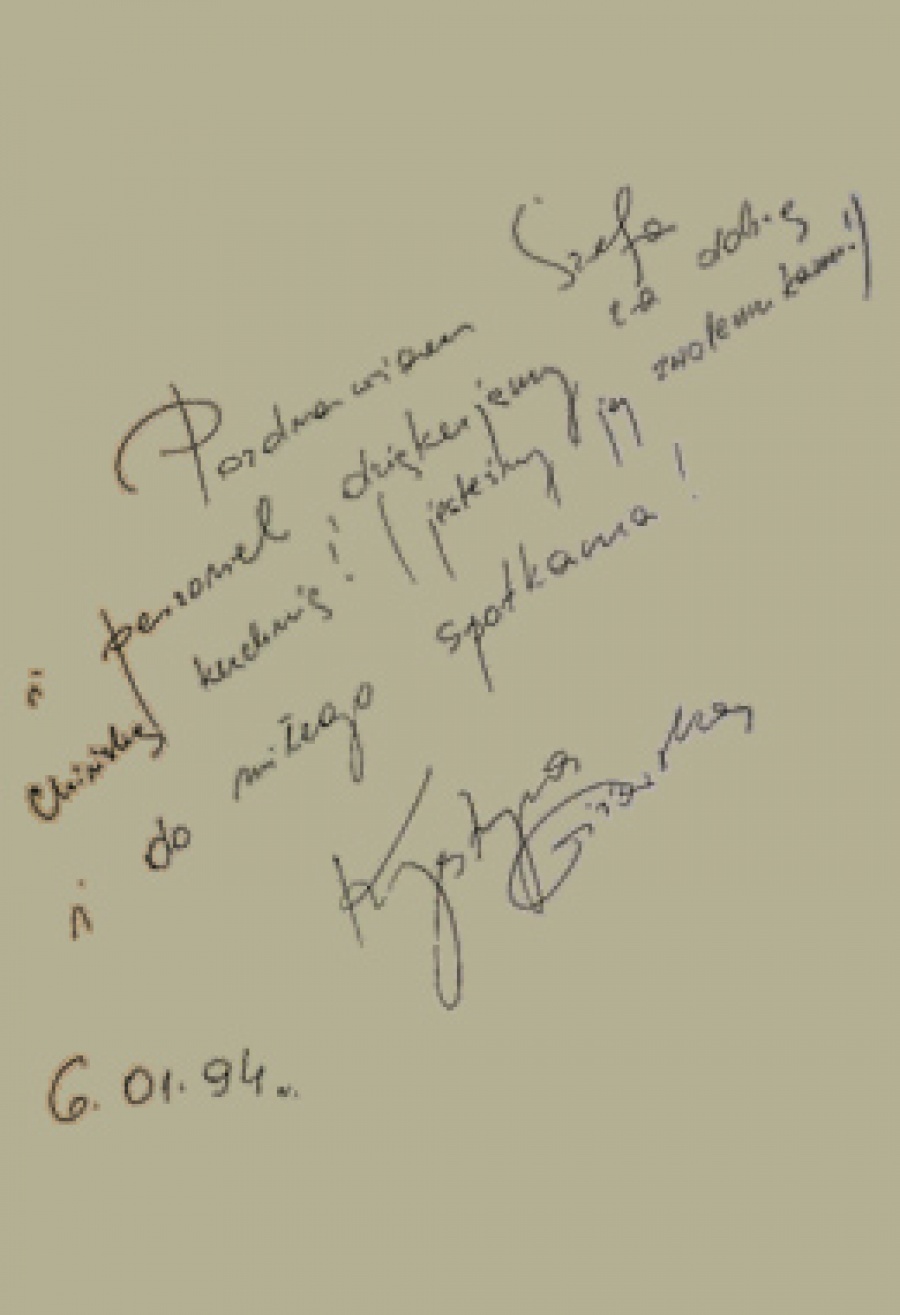 Pozdrawiam Szefa
i personel, dziękujemy za dobrą
chińską kuchnię! (jesteśmy jej zwolennikami!)
i do miłego spotkania!
Krystyna
6.01.94r.